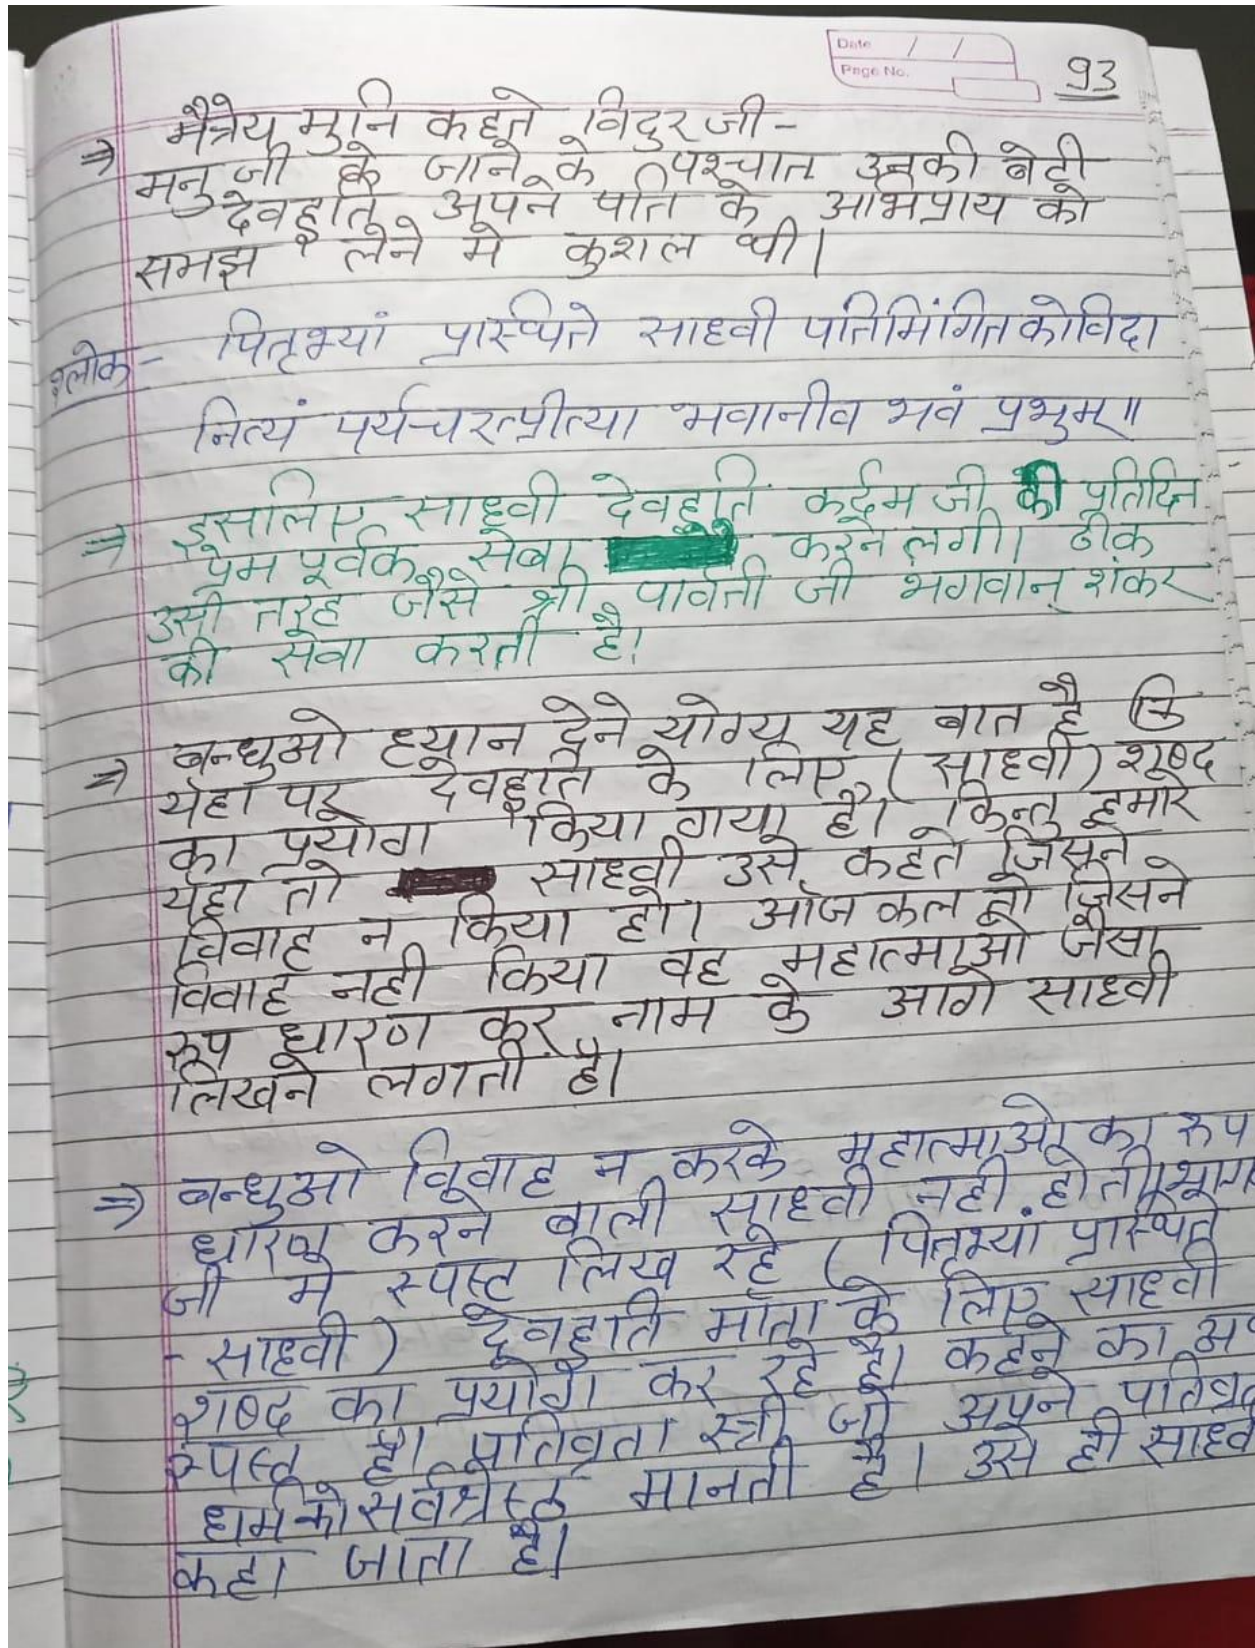 Date / /
Page No.
93
⇒ मैत्रेय मुनि कहते विदुर जी -
मनु जी के जाने के पश्चात उनकी बेटी
देवहुति अपने पति के अभिप्राय को
समझ लेने मे कुशल थी।
श्लोक - पितृभ्यां प्रास्थिते साध्वी पतिमिंगितकोविदा
नित्यं पर्यचरत्प्रीत्या भवानीव भवं प्रभुम्॥
⇒ इसलिए साध्वी देवहुति कर्दम जी की प्रतिदिन
प्रेम पूर्वक सेबा करने लगी। ठीक
उसी तरह जैसे श्री पार्वती जी भगवान् शंकर
की सेवा करती है।
⇒ बन्धुओ ध्यान देने योग्य यह बात है कि
यहा पर देवहुति के लिए (साध्वी) शब्द
का प्रयोग किया गया है। किन्तु हमारे
यहा तो साध्वी उसे कहते जिसने
विवाह न किया हो। आज कल तो जिसने
विवाह नही किया वह महात्माओ जैसा
रूप धारण कर नाम के आगे साध्वी
लिखने लगती है।
⇒ बन्धुओ विवाह न करके महात्माओ का रूप
धारण करने बाली साध्वी नही होती।
जी मे स्पस्ट लिख रहे (पितृभ्यां प्रास्थिते
- साध्वी) देवहुति माँता के लिए साध्वी
शब्द का प्रयोग कर रहे है। कहने का
स्पस्ट है। पतिव्रता स्त्री जो अपने
धर्म को सर्वश्रेस्ठ मानती है। उसे ही
कहा जाता है।